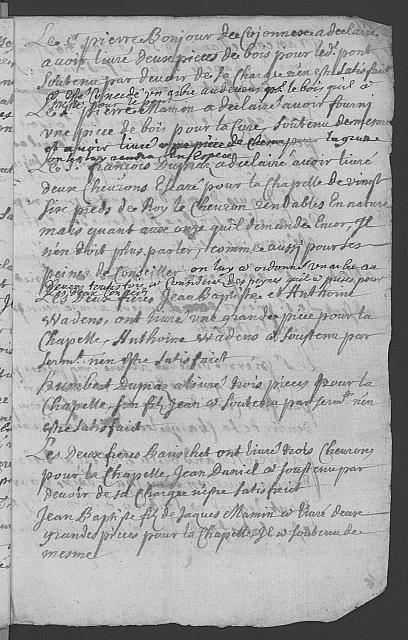 Le Sr. pierre Bonjour de Cojonnex a declairé
avoir livré deux pieces de bois pour led. pont
Soutenu par devoir de Sa Charge n'en estre Satisfait
Le Sr. pierre Mamin a declairé avoir fourni
une piece de bois pour la Cure Soutenu de mesme
et avoir livré une piece de chesne pour la grand
Le Sr. françois Dupras a declairé avoir livré
deux Cheurons Esquaré pour la Chapelle de vingt
Six pieds de Roy le Cheuron rendables En nature
mais quant aux onze qu'il demande Encor, Jl
n'en doit plus parler, comme aussi pour Ses
peines de Conseiller on luy a ordonné un arbre au
Les deux freres Jean Baptiste et Anthoine
Wadens, ont livré une grande piece pour la
Chapelle, Anthoine Wadens a Soutenu par
Sermt. n'en estre Satisfaict
Humbert Dupras a livré trois pieces pour la
Chapelle, Son fils Jean a Soutenu par Sermt. n'en
estre Satisfaict
Les Deux freres Banschet ont livré trois Cheurons
pour la Chapelle, Jean Daniel a Soutenu par
devoir de Sa Charge n'estre Satisfaict
Jean Baptiste fils de Jaques Mamin a livré deux
grandes pieces pour la Chapelle, Jl a Soutenu de
mesme